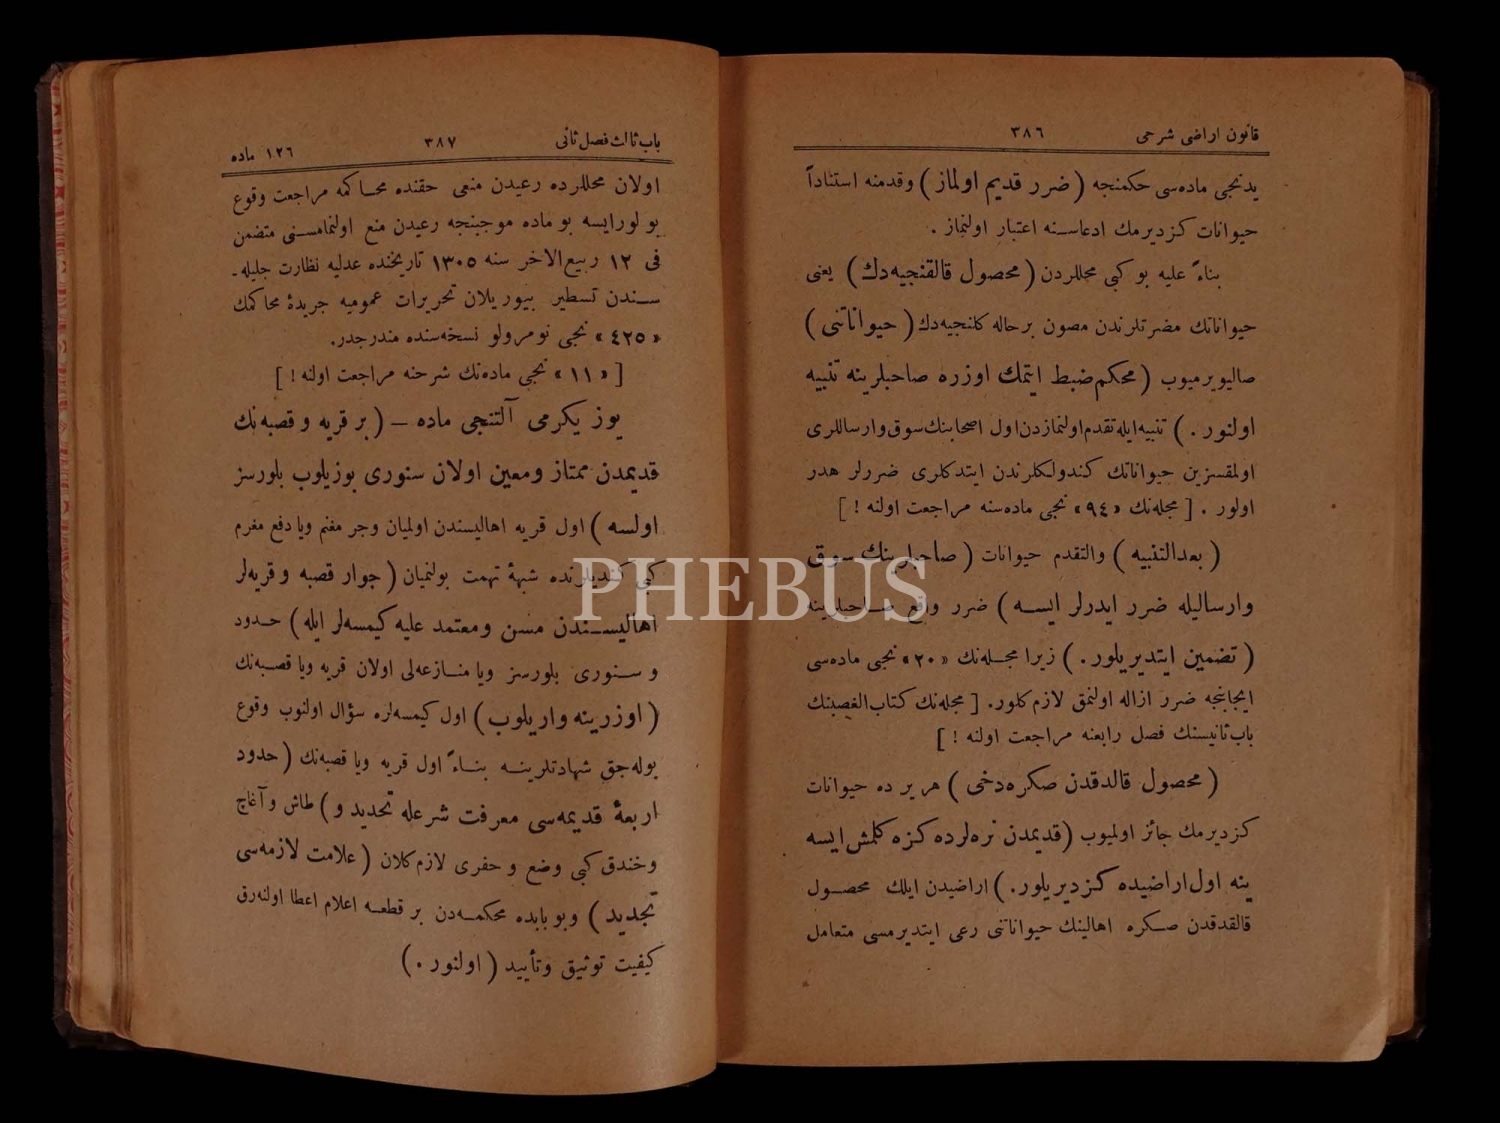 قانون اراضی شرحی ٣٨٦
یدنجی ماده‌سی حکمنجه ( ضرر قدیم اولماز ) وقدمنه استناداً
حیوانات کزدیرمك ادعاسـنه اعتبار اولنماز .
بناءً علیه بو کبی محللردن ( محصول قالقنجیه‌دك ) یعنی
حیواناتك مضرتلرندن مصون برحاله کلنجیه‌دك ( حیواناتنی )
صالیویرمیوب ( محکم ضبط ایتمك اوزره صاحبلرینه تنبیه
اولنور . ) تنبیه ایله تقدم اولنمازدن اول اصحابنك سوق وارساللری
اولمقسزین حیواناتك کندولکلرندن ایتدکلری ضررلر هدر
اولور . [ مجله‌نك «٩٤» نجی ماده‌سنه مراجعت اولنه ! ]
( بعدالتنبیه ) والتقدم حیوانات ( صاحبلرینك سوق
وارسالیله ضرر ایدرلر ایسـه ) ضرر واقع صـاحبلرینه
( تضمین ایتدیریلور . ) زیرا مجـله‌نك «٢٠» نجی ماده‌سی
ایجابنجه ضرر ازاله اولنمق لازم کلور. [ مجله‌نك کتاب الغصبنك
باب ثانیسنك فصل رابعنه مراجعت اولنه ! ]
( محصول قالدقدن صکره‌دخی ) هر یر ده حیوانات
کزدیرمك جائز اولمیوب ( قدیمدن نره‌لرده کزه کلمش ایسه
ینه اول اراضیده کـزدیریلور. ) اراضیدن ایلك محصـول
قالقدقدن صـکره اهالینك حیواناتنی رعی ایتدیرمسی متعامل
باب ثالث فصل ثانی ٣٨٧ ١٢٦ ماده
اولان محللرده رعیدن منعی حقنده محـاکمه مراجعت وقوع
بولورایسه بو ماده موجبنجه رعیدن منع اولنمامسـنی متضمن
فی ١٢ ربیع‌الاخر سنه ١٣٠٥ تاریخنده عدلیه نظارت جلیله-
سـندن تسطیر بیوریلان تحریرات عمومیه جریدهٔ محاکمك
«٤٢٥» نجی نومرولو نسخه‌سنده مندرجدر.
[ «١١» نجی ماده‌نك شرحنه مراجعت اولنه ! ]
یوز یکرمی آلتنجی ماده – ( بر قریه و قصبه‌نك
قدیمدن ممتاز ومعین اولان سنوری بوزیلوب بلورسز
اولسه ) اول قریه اهالیسندن اولمیان وجر مغنم ویا دفع مغرم
کبی کندیلرنده شبههٔ تهمت بولنمیان ( جوار قصبه و قریه‌لر
اهالیسـندن مسن ومعتمد علیه کیمسه‌لر ایله ) حـدود
و سـنوری بلورسز ویا منـازعه‌لی اولان قریه ویا قصـبه‌نك
( اوزرینه واریلوب ) اول کیمسه‌لره سؤال اولنوب وقوع
بوله‌جق شهادتلرینـه بنـاءً اول قریه ویا قصبه‌نك ( حدود
اربعهٔ قدیمه‌سی معرفت شرعله تحدید و ) طاش وآغاج
وخندق کبی وضع و حفری لازم کلان ( علامت لازمه‌سی
تجدید ) وبو بابده محکمـه‌دن بر قطعـه اعلام اعطا اولنه‌رق
کیفیت توثیق وتأیید ( اولنور . )
PHEBUS